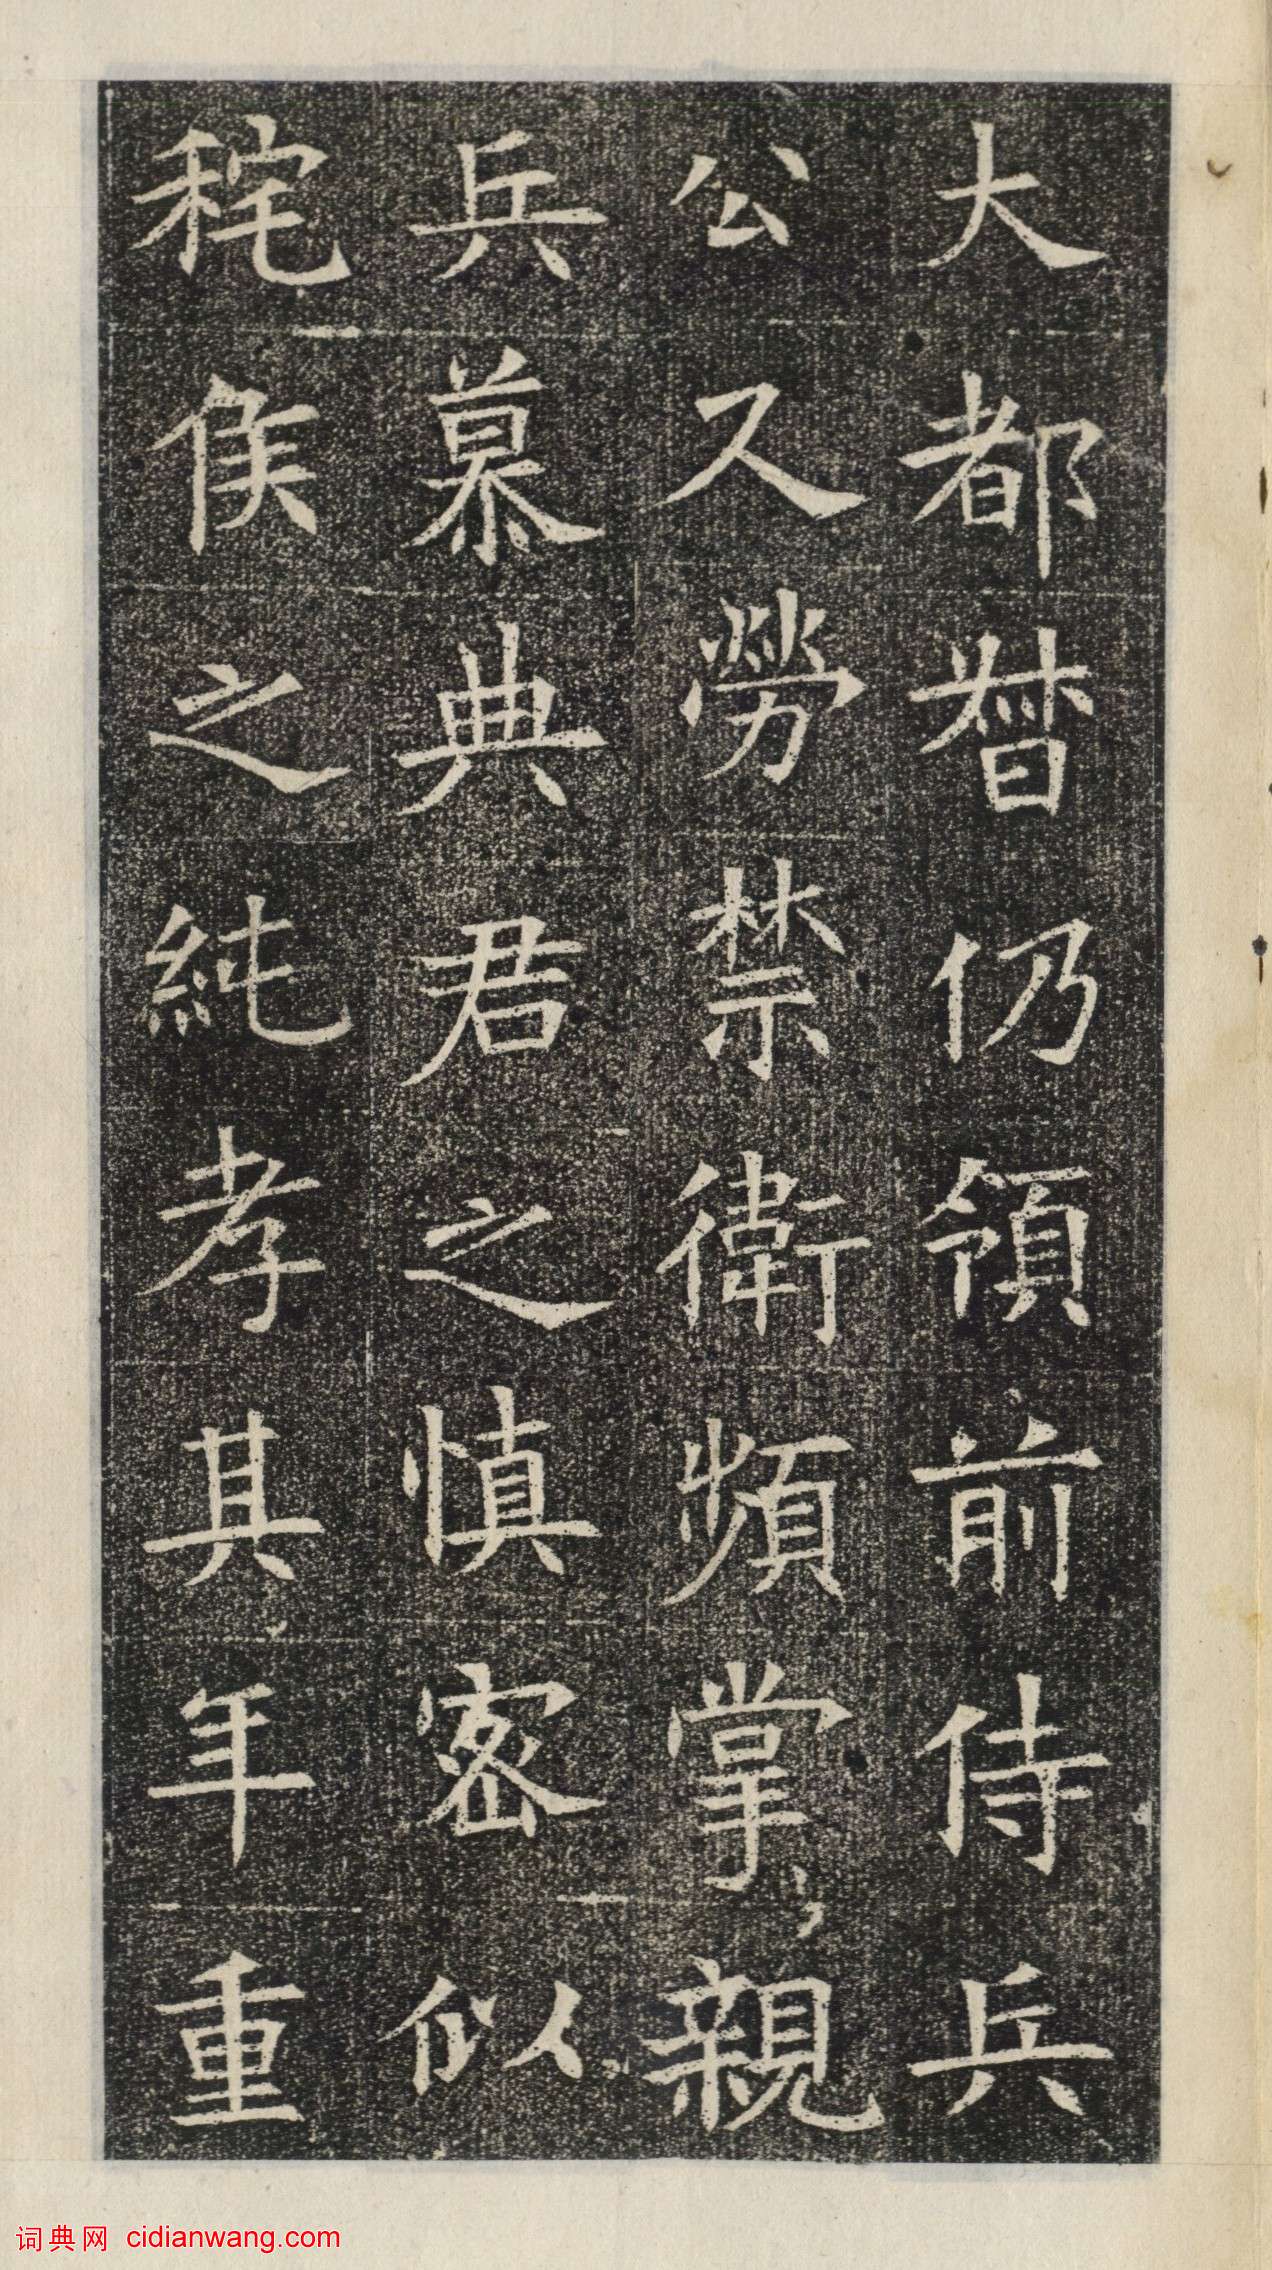 大都督仍領前侍兵
公又勞禁衛頻掌親
兵慕典君之慎密似
秺侯之純孝其年重
词典网 cidianwang.com